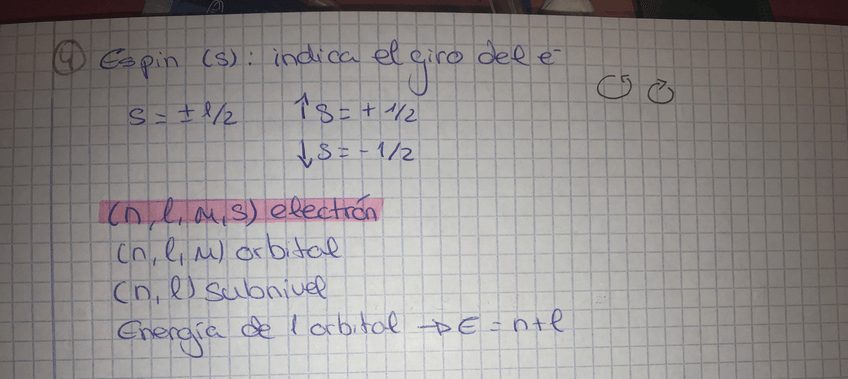 ④ Espin (s): indica el giro del e⁻
s = ± 1/2 ↑ s = + 1/2
↓ s = - 1/2
(n, l, m, s) electrón
(n, l, m) orbital
(n, l) subnivel
Energía de 1 orbital → E = n + l